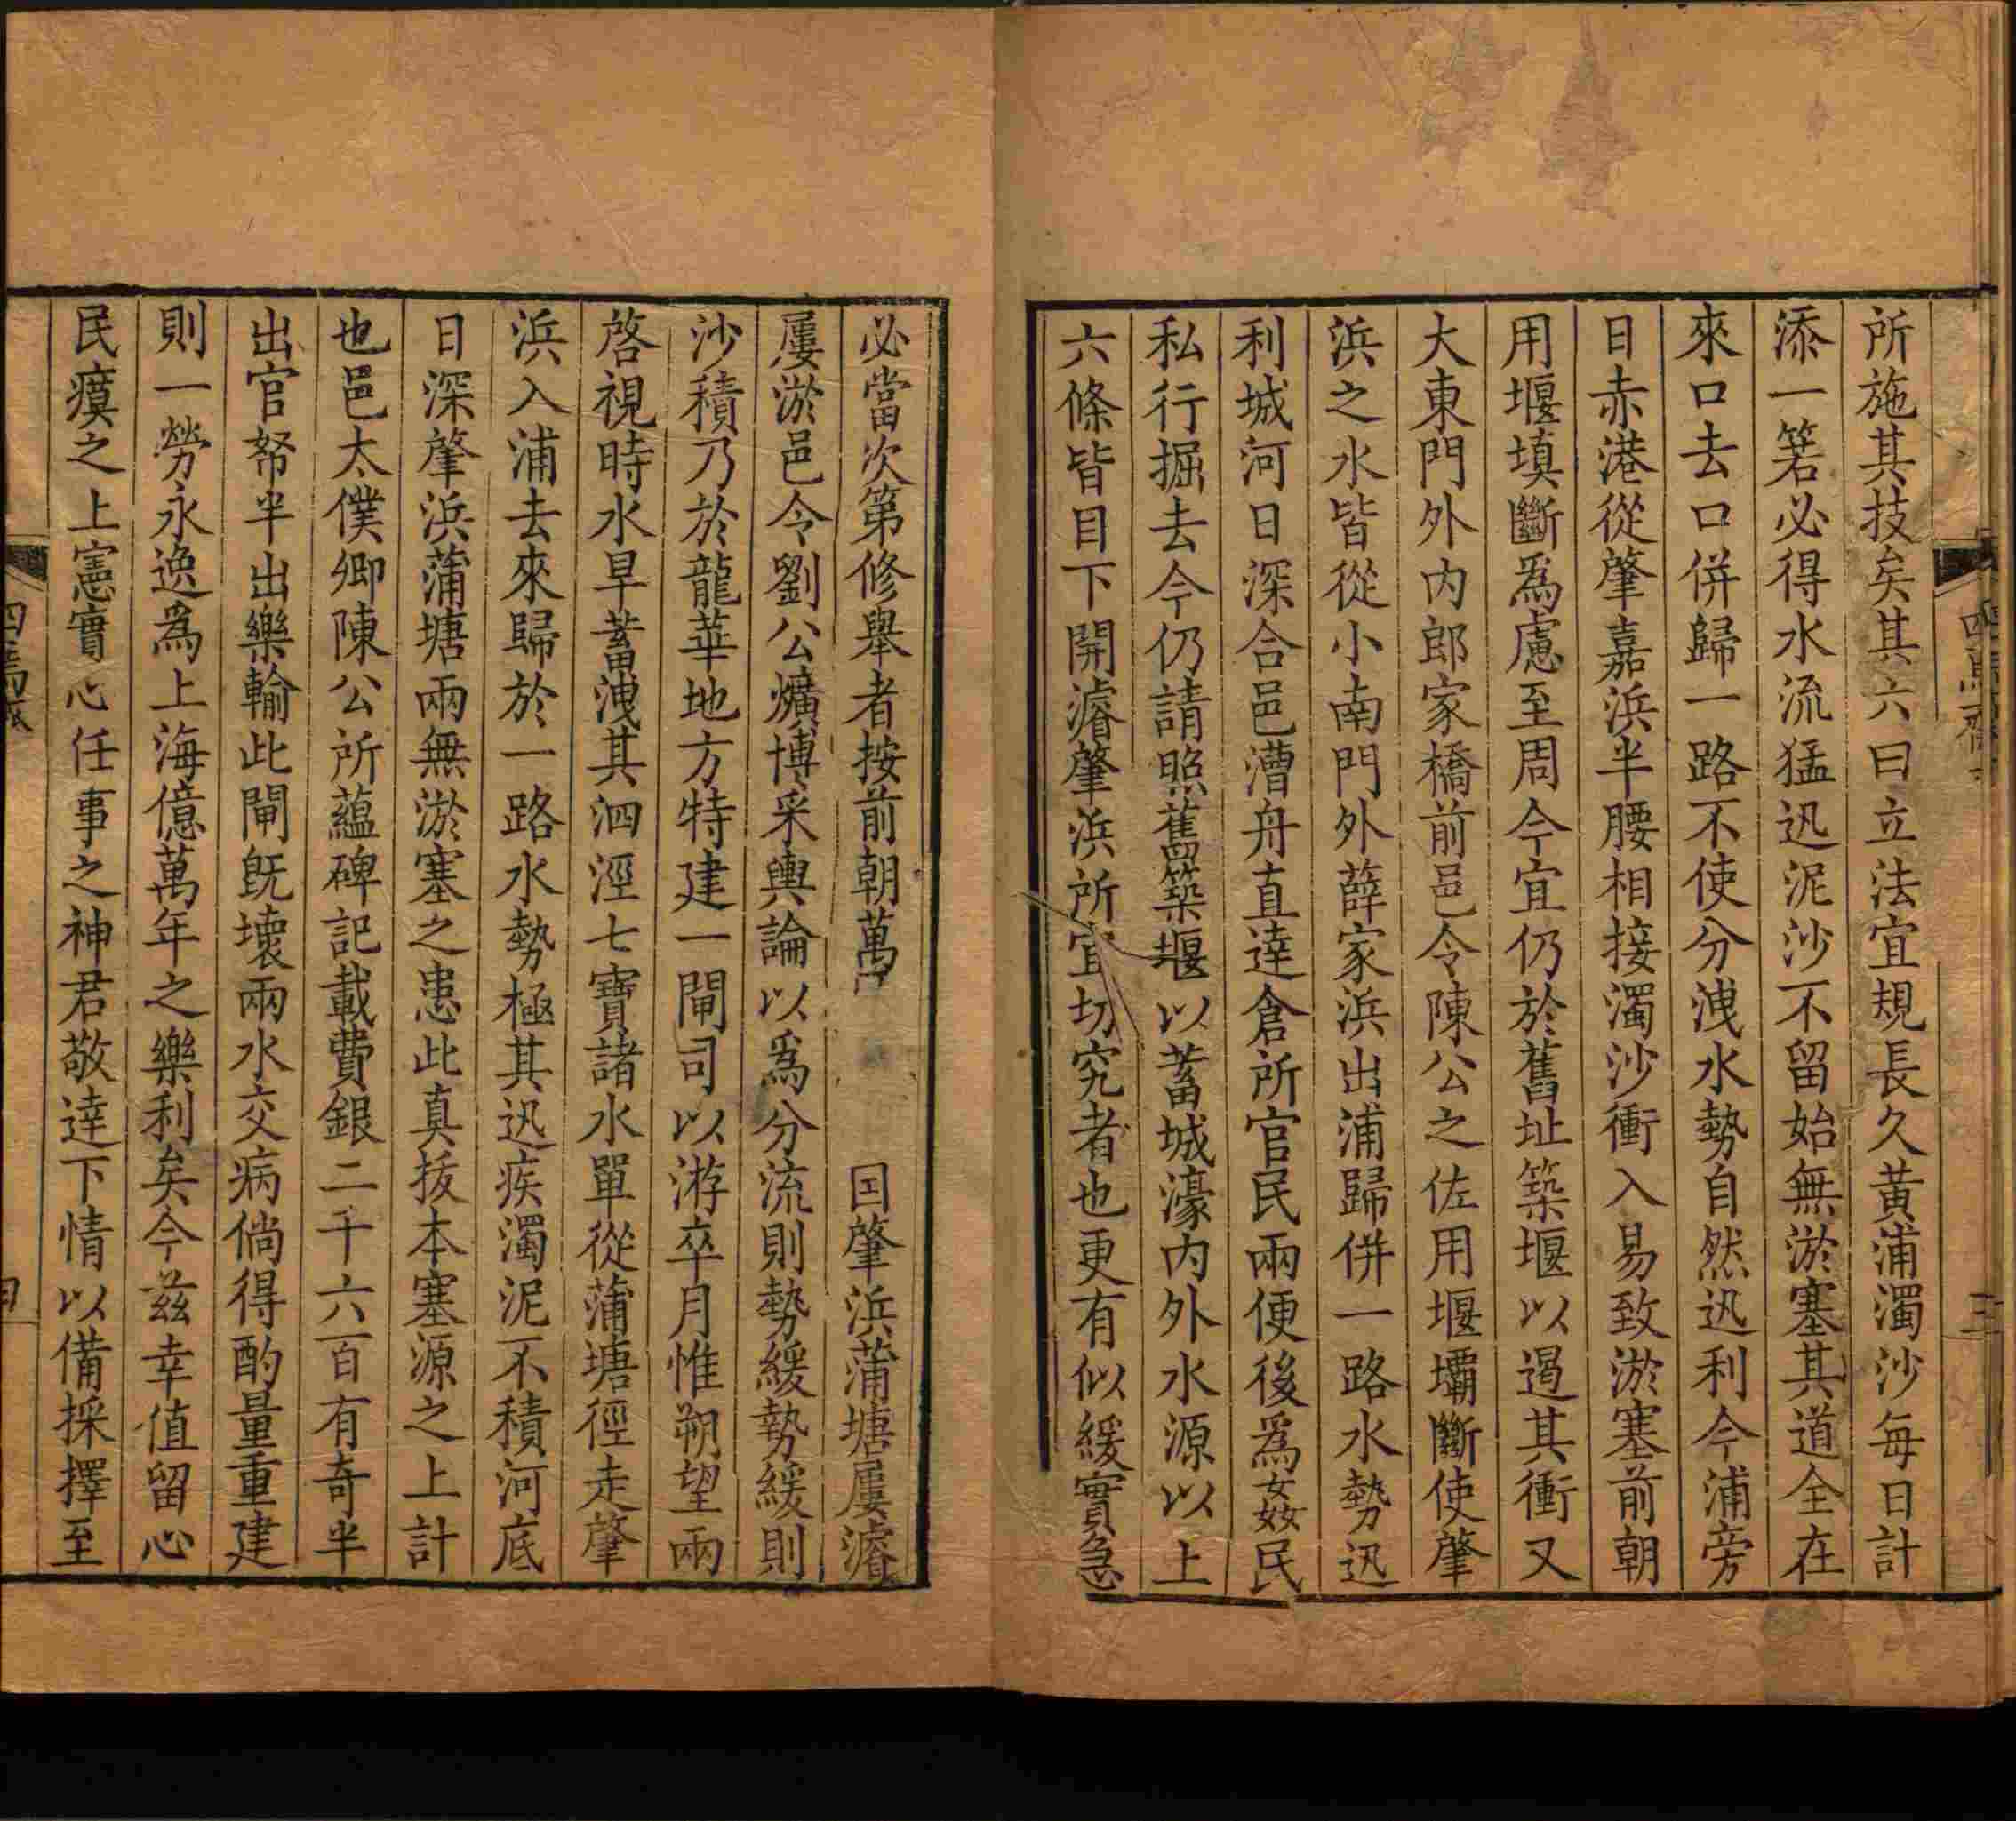 所施其技矣其六曰立法宜規長久黃浦濁沙每日計
添一箬必得水流猛迅泥沙不留始無淤塞其道全在
來口去口併歸一路不使分洩水勢自然迅利今浦旁
日赤港從肇嘉浜半腰相接濁沙衝入易致淤塞前朝
用堰填斷爲慮至周今宜仍於舊址築堰以遏其衝又
大東門外内郎家橋前邑令陳公之佐用堰壩斷使肇
浜之水皆從小南門外薛家浜出浦歸併一路水勢迅
利城河日深合邑漕舟直達倉所官民兩便後爲姦民
私行掘去今仍請照舊築堰以蓄城濠内外水源以上
六條皆目下開濬肇浜所宜切究者也更有似緩實急
必當次第修舉者按前朝萬 肇浜蒲塘屢濬
屢淤邑令劉公爌博采輿論以爲分流則勢緩勢緩則
沙積乃於龍華地方特建一閘司以游卒月惟朔望兩
啓視時水旱蓄洩其泗涇七寶諸水單從蒲塘徑走肇
浜入浦去來歸於一路水勢極其迅疾濁泥不積河底
日深肇浜蒲塘兩無淤塞之患此真拔本塞源之上計
也邑太僕卿陳公所蘊碑記載費銀二千六百有奇半
出官帑半出樂輸此閘既壞兩水交病倘得酌量重建
則一勞永逸爲上海億萬年之樂利矣今兹幸值留心
民瘼之上憲實心任事之神君敬達下情以備採擇至